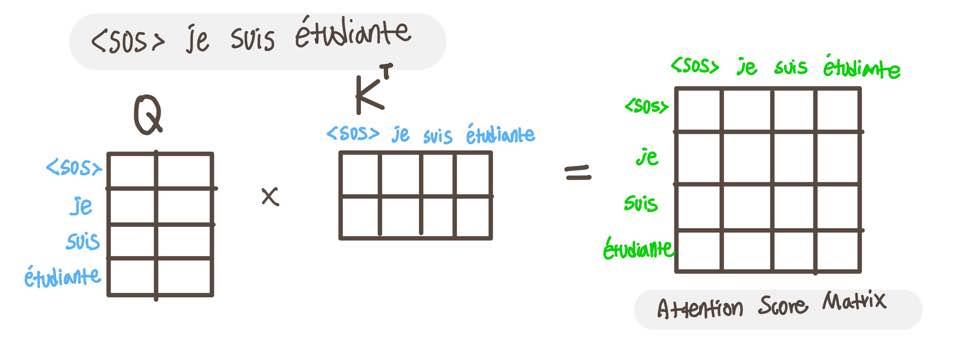 <sos> je suis étudiante
Q
<sos>
je
suis
étudiante
x
K^T
<sos> je suis étudiante
=
<sos> je suis étudiante
<sos>
je
suis
étudiante
Attention Score Matrix